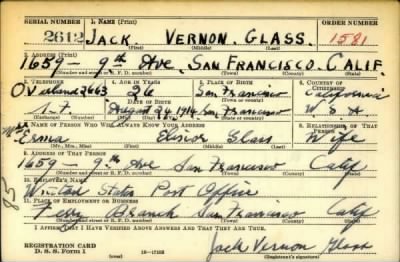 SERIAL NUMBER 1. NAME (Print) ORDER NUMBER
2612 JACK. VERNON. GLASS. 1581
(First) (Middle) (Last)
2. ADDRESS (Print)
1659 - 9th Ave. SAN FRANCISCO. CALIF.
(Number and street or R. F. D. number) (Town) (County) (State)
3. TELEPHONE 4. AGE IN YEARS 5. PLACE OF BIRTH 6. COUNTRY OF CITIZENSHIP
OVerland 2663 26 San Francisco California
DATE OF BIRTH (Town or county)
S.F. August 26, 1914 San Francisco U.S.A
(Exchange) (Number) (Mo.) (Day) (Yr.) (State or country)
7. NAME OF PERSON WHO WILL ALWAYS KNOW YOUR ADDRESS 8. RELATIONSHIP OF THAT PERSON
Mrs Erma Elinor Glass Wife
(Mr., Mrs., Miss) (First) (Middle) (Last)
9. ADDRESS OF THAT PERSON
1659 - 9th Ave San Francisco Calif
(Number and street or R. F. D. number) (Town) (County) (State)
10. EMPLOYER'S NAME
United States Post Office
11. PLACE OF EMPLOYMENT OR BUSINESS
Ferry Branch San Francisco Calif
(Number and street or R. F. D. number) (Town) (County) (State)
I AFFIRM THAT I HAVE VERIFIED ABOVE ANSWERS AND THAT THEY ARE TRUE.
REGISTRATION CARD
D. S. S. Form 1 16-17105 Jack Vernon Glass